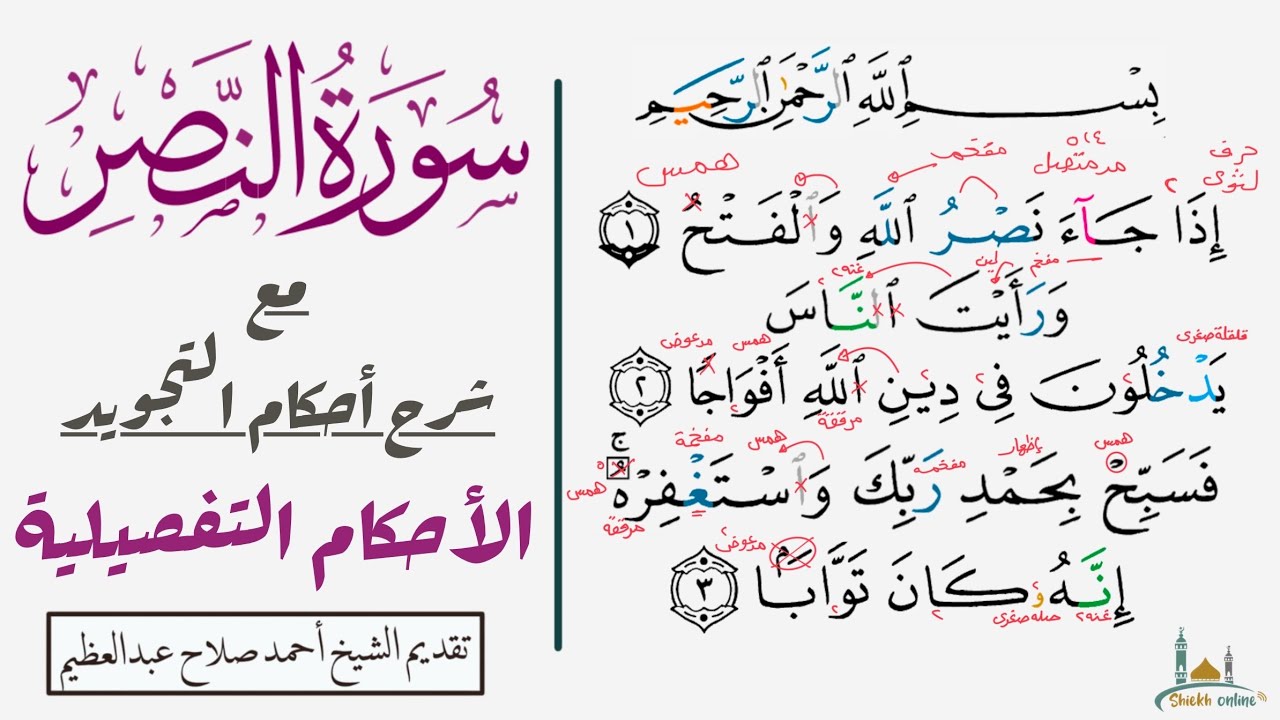 سُورَةُ النَّصْرِ
مع
شرح أحكام التجويد
الأحكام التفصيلية
تقديم الشيخ أحمد صلاح عبدالعظيم
بِسْمِ ٱللَّهِ ٱلرَّحْمَٰنِ ٱلرَّحِيمِ
حرف لثوي ٢ مد متصل ٥/٤ مفخم همس
إِذَا جَآءَ نَصْرُ ٱللَّهِ وَٱلْفَتْحُ ١
مفخم لين غنة ٢
وَرَأَيْتَ ٱلنَّاسَ
قلقلة صغرى همس مد عوض
يَدْخُلُونَ فِى دِينِ ٱللَّهِ أَفْوَاجًا ٢
مرققة
همس إظهار مفخمه همس مفخمة
فَسَبِّحْ بِحَمْدِ رَبِّكَ وَٱسْتَغْفِرْهُ ۚ
همس مرققة
مد عوض
إِنَّهُۥ كَانَ تَوَّابًۢا ٣
غنة ٢ صلة صغرى ٢
Shiekh online